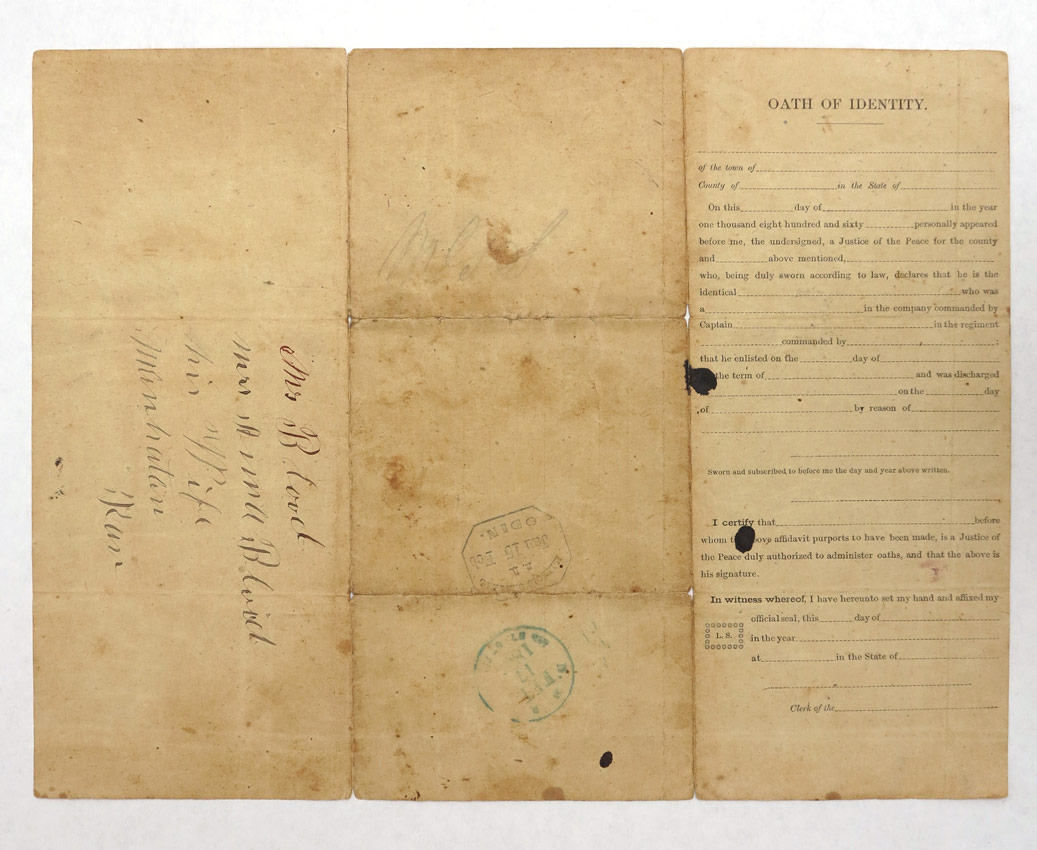 Mrs Blood
Mrs Anna Blood
his Wife
Manhatan
Kan
ODIN.
OATH OF IDENTITY.
of the town of
County of in the State of
On this day of in the year
one thousand eight hundred and sixty personally appeared
before me, the undersigned, a Justice of the Peace for the county
and above mentioned,
who, being duly sworn according to law, declares that he is the
identical who was
a in the company commanded by
Captain in the regiment
commanded by ;
that he enlisted on the day of
the term of and was discharged
on the day
of by reason of
Sworn and subscribed to before me the day and year above written.
I certify that before
whom affidavit purports to have been made, is a Justice of
the Peace duly authorized to administer oaths, and that the above is
his signature.
In witness whereof, I have hereunto set my hand and affixed my
official seal, this day of
L. S.
in the year
at in the State of
Clerk of the